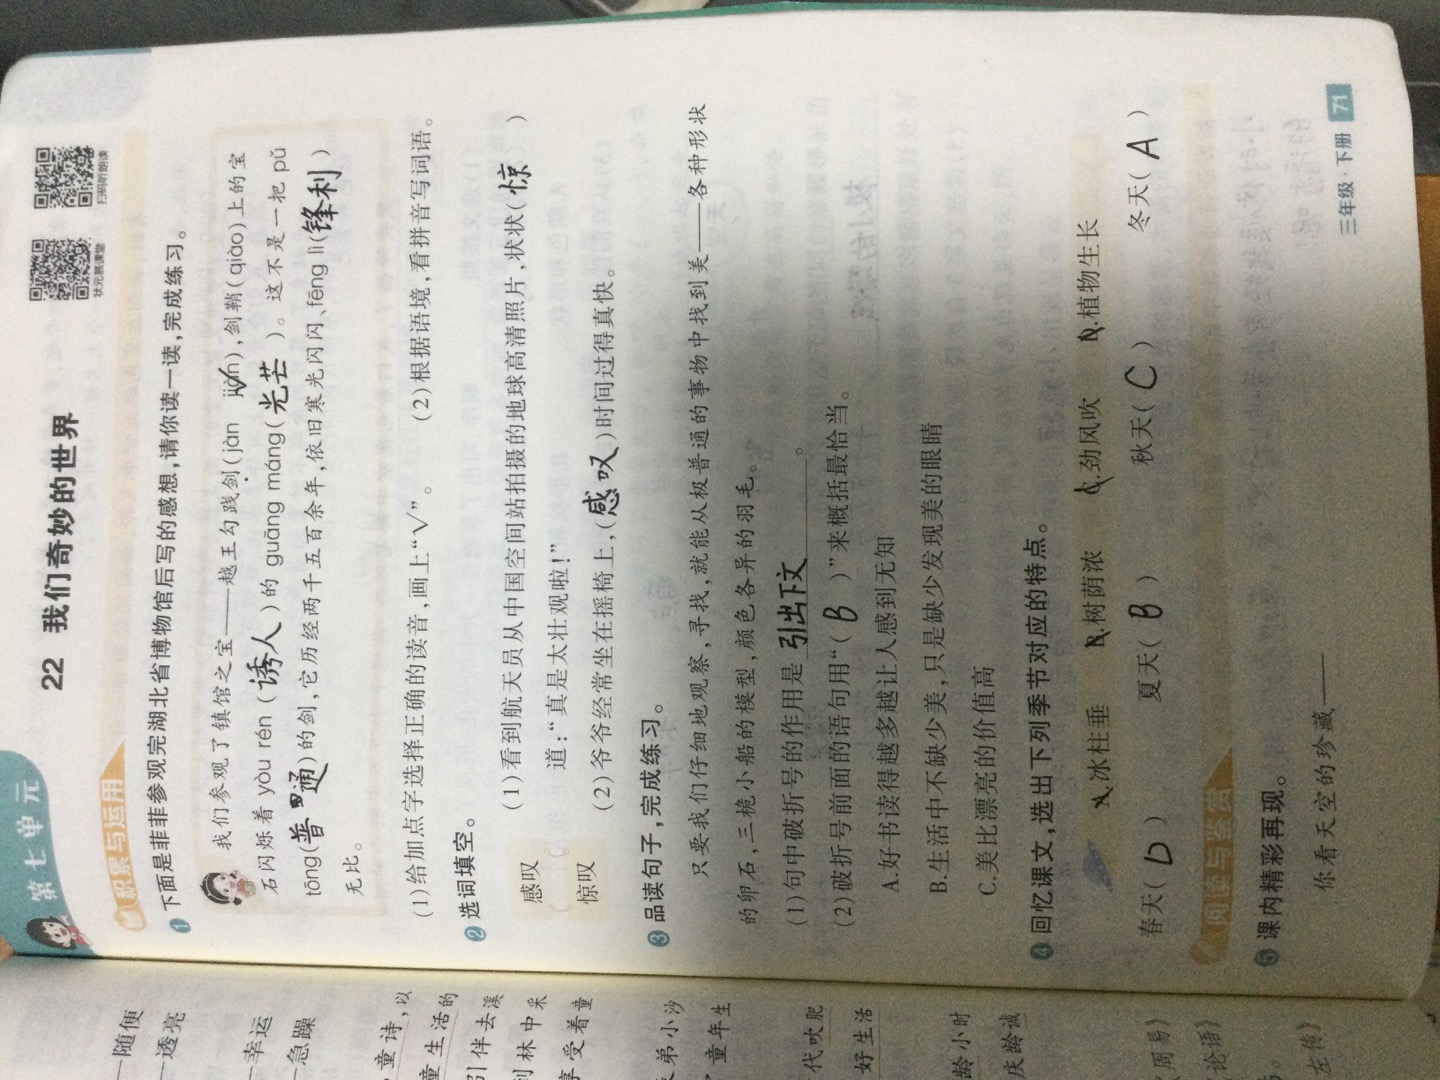 第七单元
22 我们奇妙的世界
状元晨课堂
扫码听朗读
积累与运用
1 下面是菲菲参观完湖北省博物馆后写的感想,请你读一读,完成练习。
我们参观了镇馆之宝——越王勾践剑(jàn jiàn√),剑鞘(qiào)上的宝
石闪烁着 yòu rén (诱人)的 guāng máng(光芒)。这不是一把 pǔ
tōng(普通)的剑,它历经两千五百余年,依旧寒光闪闪、fēng lì(锋利)
无比。
(1)给加点字选择正确的读音,画上“√”。 (2)根据语境,看拼音写词语。
2 选词填空。
感叹
惊叹
(1)看到航天员从中国空间站拍摄的地球高清照片,状状(惊 )
道:“真是太壮观啦!”
(2)爷爷经常坐在摇椅上,(感叹)时间过得真快。
3 品读句子,完成练习。
只要我们仔细地观察,寻找,就能从极普通的事物中找到美——各种形状
的卵石,三桅小船的模型,颜色各异的羽毛。
(1)句中破折号的作用是 引出下文 。
(2)破折号前面的语句用“( B )”来概括最恰当。
A.好书读得越多越让人感到无知
B.生活中不缺少美,只是缺少发现美的眼睛
C.美比漂亮的价值高
4 回忆课文,选出下列季节对应的特点。
A.冰柱垂 B.树荫浓 C.劲风吹 D.植物生长
春天( D ) 夏天( B ) 秋天( C ) 冬天( A )
阅读与鉴赏
5 课内精彩再现。
你看天空的珍藏——
三年级·下册 71
随便
透亮
幸运
急躁
童诗,以
童生活的
引伴去溪
到林中采
享受着童
弟小沙
童年生
代吹肥
好生活
龄小时
庆龄诚
周易》
论语》
左传》